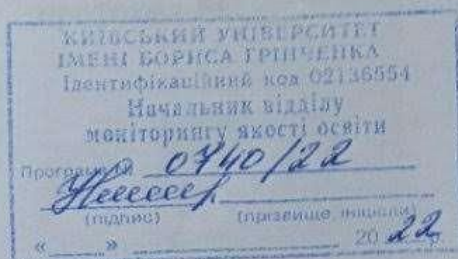 КИЇВСЬКИЙ УНІВЕРСИТЕТ
ІМЕНІ БОРИСА ГРІНЧЕНКА
Ідентифікаційний код 02136554
Начальник відділу
моніторингу якості освіти
Програма № 0740/22
(підпис) (прізвище, ініціали)
« » 20 22 р